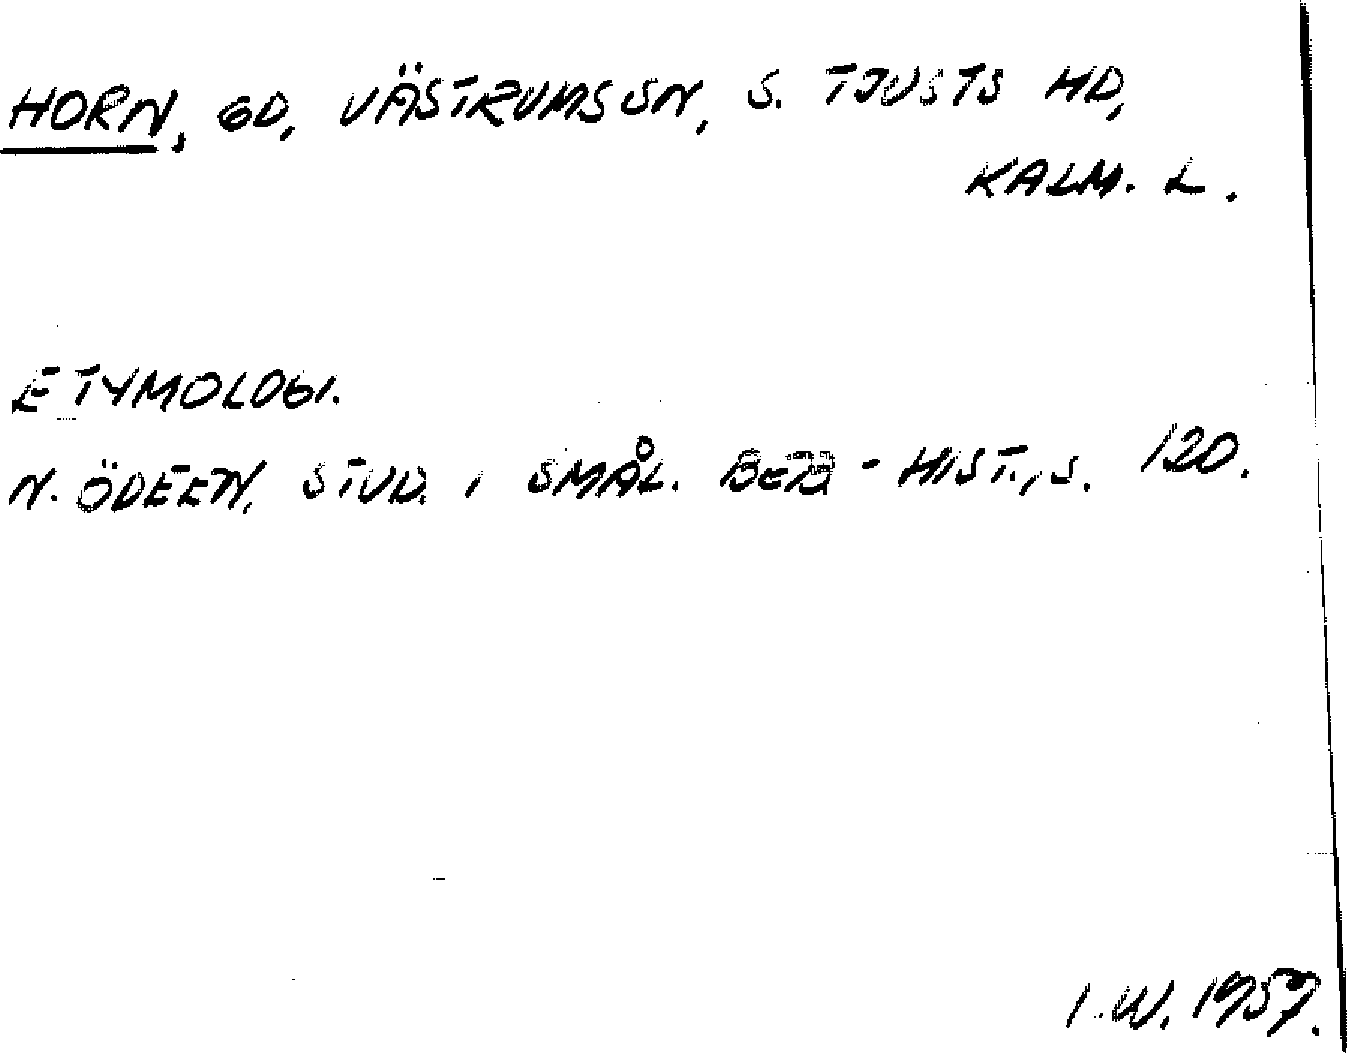 HORN, GD, VÄSTRUMS SN, S. TJUSTS HD,
KALM. L.
ETYMOLOGI.
N. ÖDEEN, STUD. I SMÅL. BEB - HIST., S. 120.
I.W. 1957.